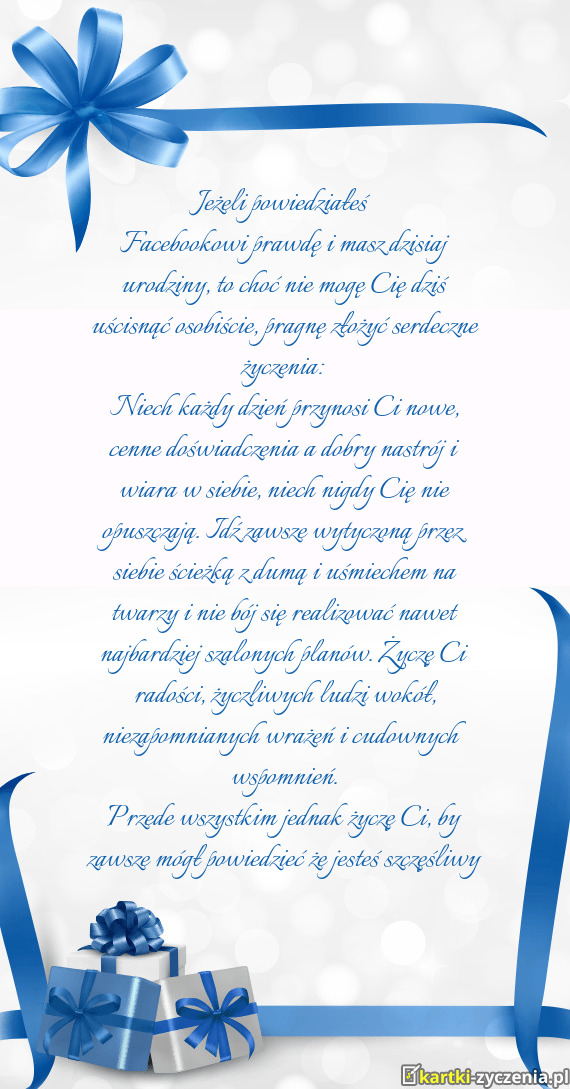 Jeżeli powiedziałeś
Facebookowi prawdę i masz dzisiaj
urodziny, to choć nie mogę Cię dziś
uścisnąć osobiście, pragnę złożyć serdeczne
życzenia:
Niech każdy dzień przynosi Ci nowe,
cenne doświadczenia a dobry nastrój i
wiara w siebie, niech nigdy Cię nie
opuszczają. Idź zawsze wytyczoną przez
siebie ścieżką z dumą i uśmiechem na
twarzy i nie bój się realizować nawet
najbardziej szalonych planów. Życzę Ci
radości, życzliwych ludzi wokół,
niezapomnianych wrażeń i cudownych
wspomnień.
Przede wszystkim jednak życzę Ci, by
zawsze mógł powiedzieć że jesteś szczęśliwy
kartki-zyczenia.pl